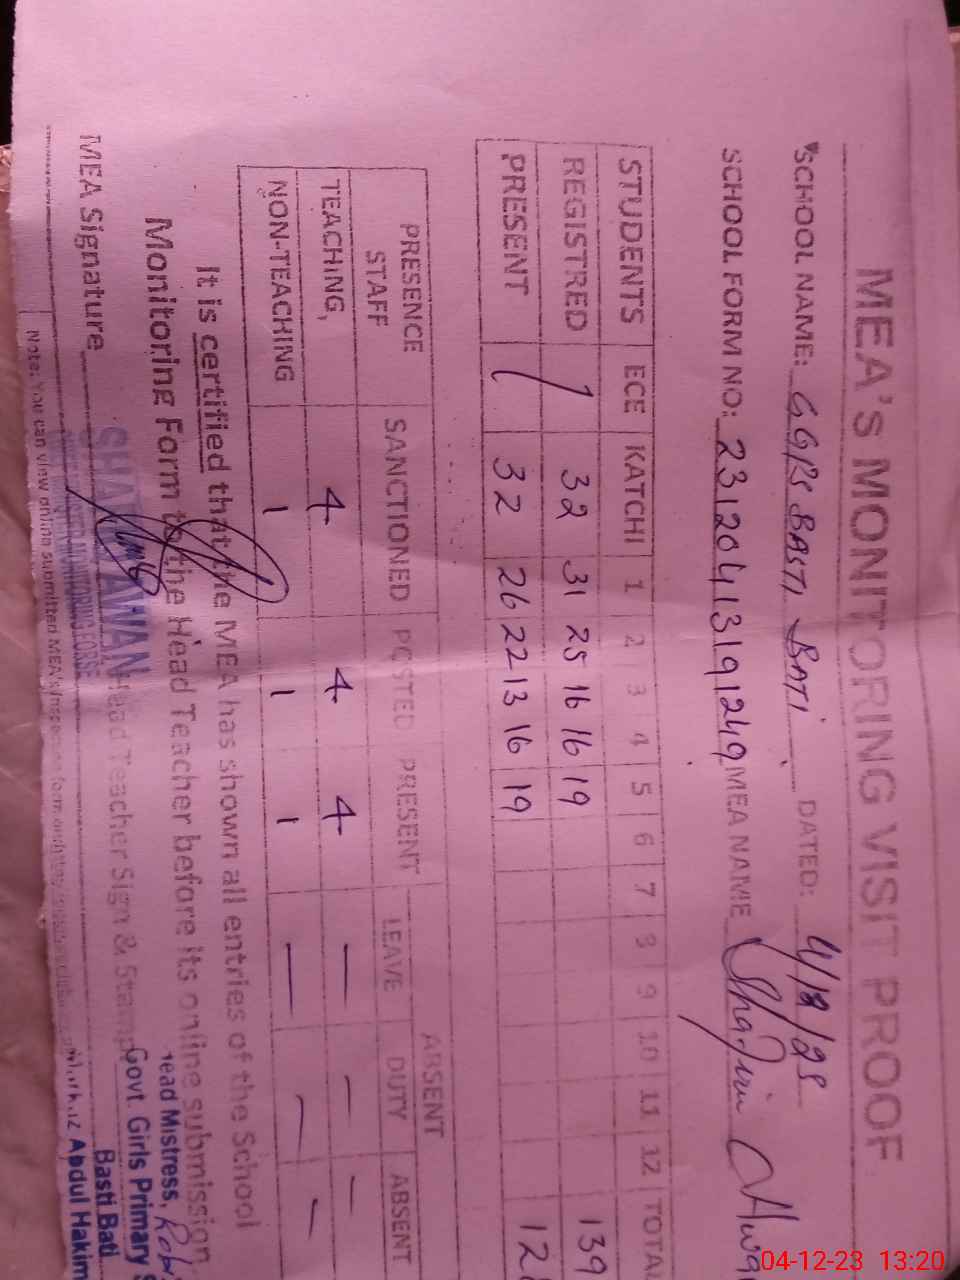 MEA'S MONITORING VISIT PROOF
SCHOOL NAME: GGPS BASTI BATI DATED: 4/12/23
SCHOOL FORM NO: 23120413191249 MEA NAME
STUDENTS ECE KATCHI 1 2 3 4 5 6 7 8 9 10 11 12 TOTAL
REGISTRED / 32 31 25 16 16 19 139
PRESENT / 32 26 22 13 16 19 12
PRESENCE ABSENT
STAFF SANCTIONED POSTED PRESENT LEAVE DUTY ABSENT
TEACHING, 4 4 4 — — —
NON-TEACHING 1 1 1 — — —
It is certified that the MEA has shown all entries of the School
Monitoring Form to the Head Teacher before its online submission
MEA Signature Head Teacher Sign & Stamp
MONITORING FORSE
Head Mistress,
Govt. Girls Primary
Basti Bati
Markaz Abdul Hakim
Note: You can view online submitted MEA's
04-12-23 13:20